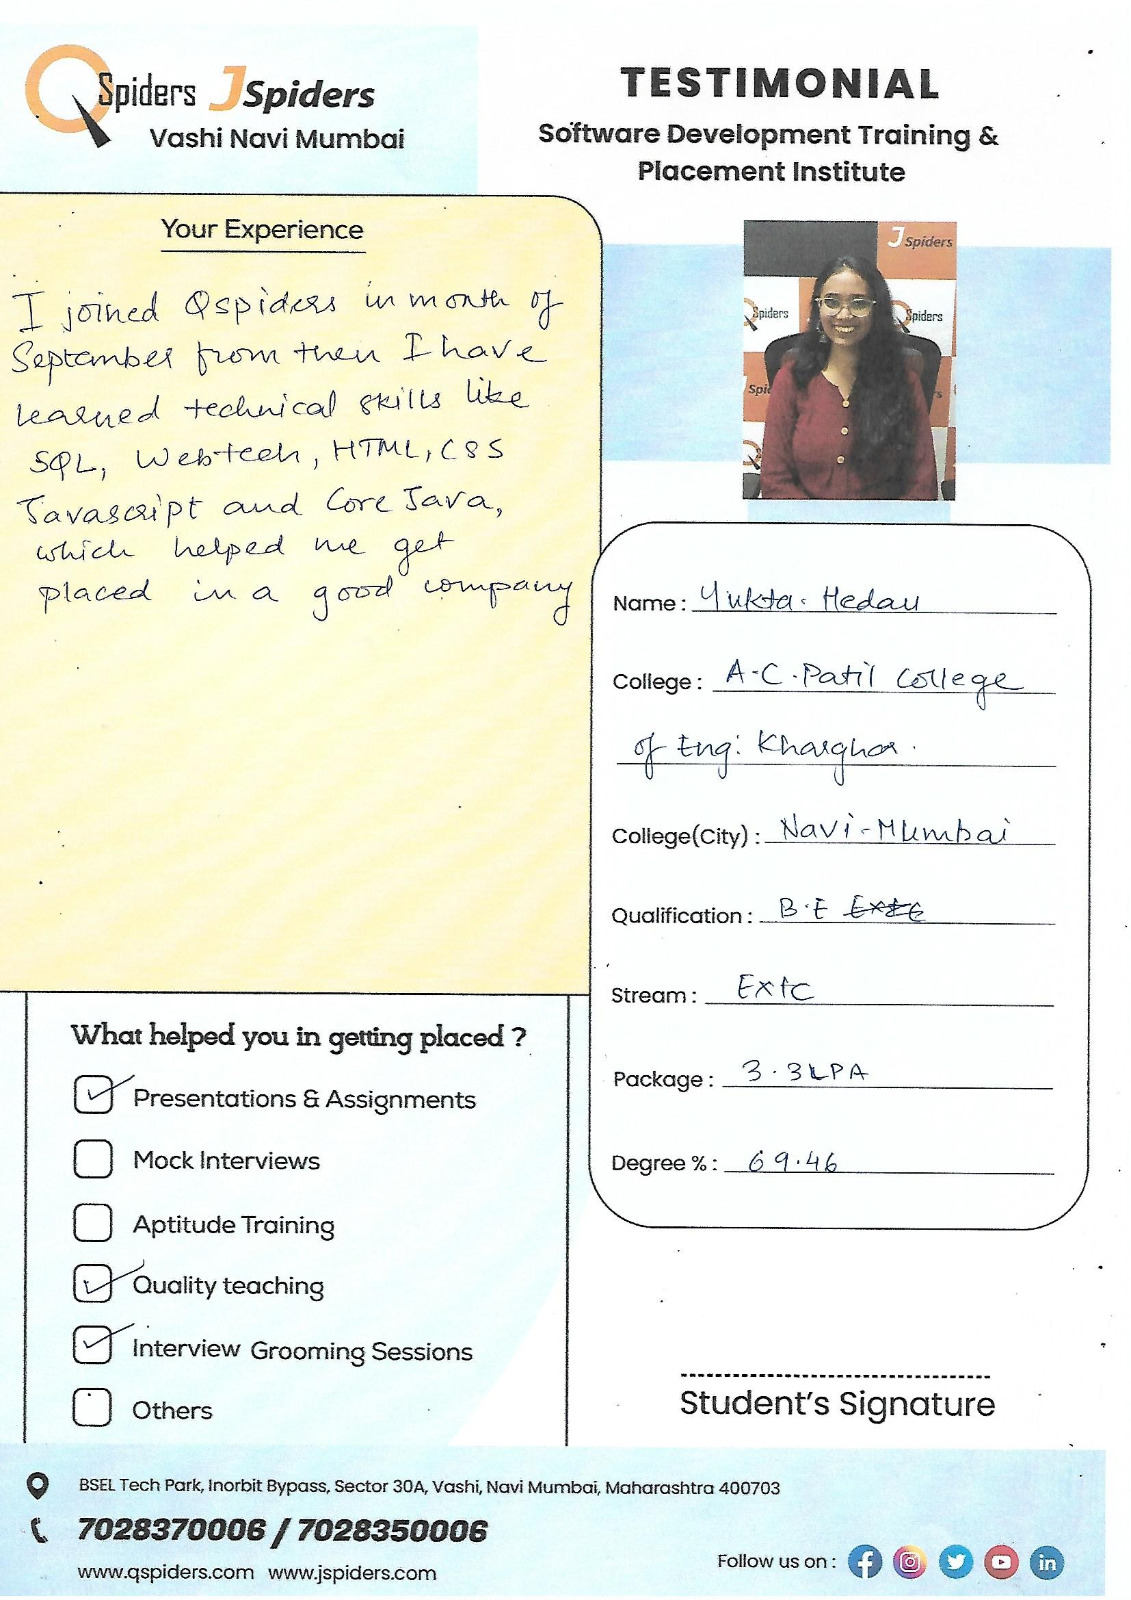 QSpiders JSpiders
Vashi Navi Mumbai
TESTIMONIAL
Software Development Training &
Placement Institute
Your Experience
I joined Qspiders in month of
September from then I have
learned technical skills like
SQL, Webtech, HTML, CSS
Javascript and Core Java,
which helped me get
placed in a good company
JSpiders
Spiders
Spiders
Name : Yukta. Hedau
College : A.C.Patil College
of Eng: Kharghar.
College(City) : Navi-Mumbai
Qualification : B.E
Stream : ExtC
Package : 3.3LPA
Degree % : 69.46
What helped you in getting placed ?
Presentations & Assignments
Mock Interviews
Aptitude Training
Quality teaching
Interview Grooming Sessions
Others
Student's Signature
BSEL Tech Park, Inorbit Bypass, Sector 30A, Vashi, Navi Mumbai, Maharashtra 400703
7028370006 / 7028350006
www.qspiders.com www.jspiders.com
Follow us on :